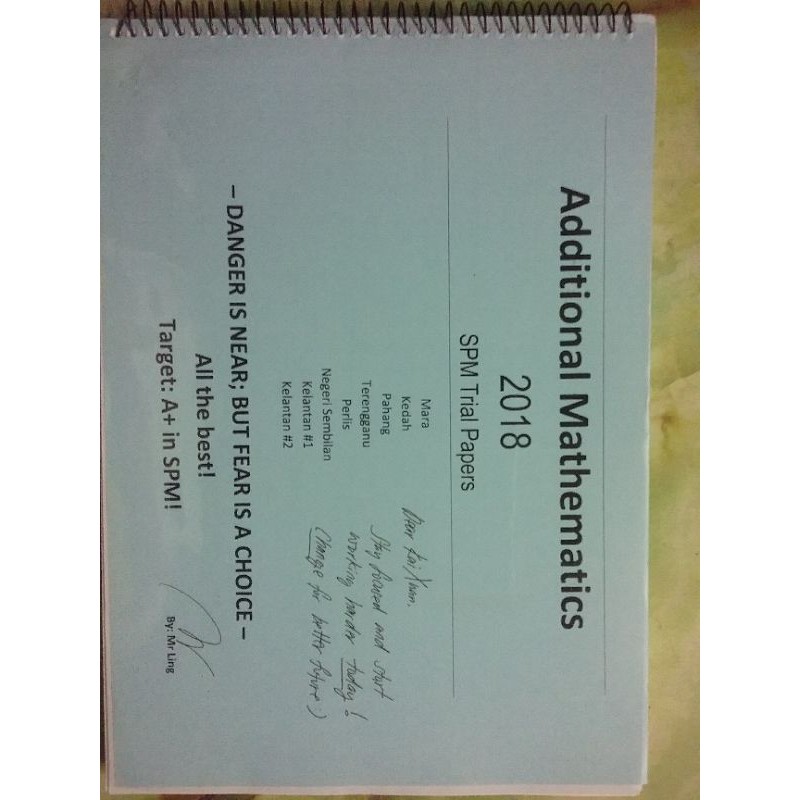 Additional Mathematics
2018
SPM Trial Papers
Mara
Kedah
Pahang
Terengganu
Perlis
Negeri Sembilan
Kelantan #1
Kelantan #2
Dear Kai Xuan,
Stay focused and start
working harder today!
Change for better future :)
– DANGER IS NEAR; BUT FEAR IS A CHOICE –
All the best!
Target: A+ in SPM!
By: Mr Ling